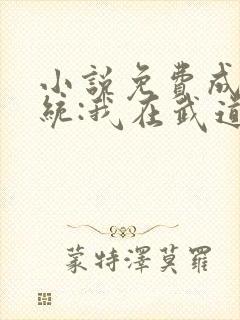 小說免費成
統:我在武道
蒙特澤莫羅